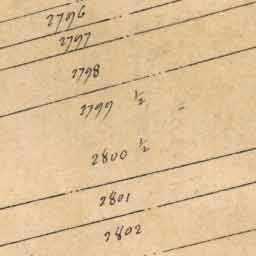 2796
2797
2798
2799 ½
2800 ½
2801
2802